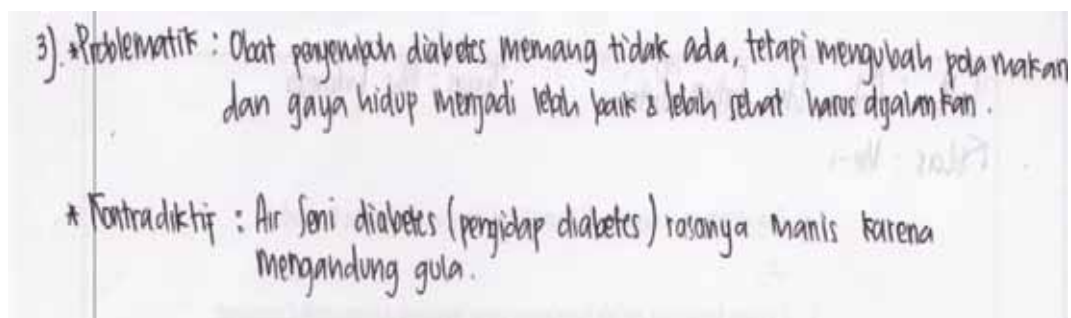 3). *Problematik : Obat penyembuh diabetes memang tidak ada, tetapi mengubah pola makan
dan gaya hidup menjadi lebih baik & lebih sehat harus dijalankan.
* Kontradiktif : Air Seni diabetes (pengidap diabetes) rasanya manis karena
mengandung gula.